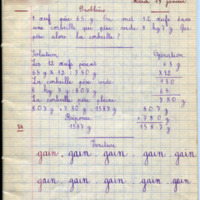 Mardi 19 janvier
Problème
1 œuf pèse 65 g. On met 12 œufs dans
une corbeille que pèse vide 8 hg 7 g. Que
pèse alors la corbeille ?
Solution Opération
Les 12 œufs pèsent 65
65 g x 12 = 780 g 12
La corbeille pèse vide 130
8 hg 7 = 807 g 65
La corbeille pèse pleine 780
807 g + 780 = 1587 g 807
Réponse + 780
1587 g 1587
Ecriture
gain, gain, gain, gain, gain
gain, gain, gain, gain, gain